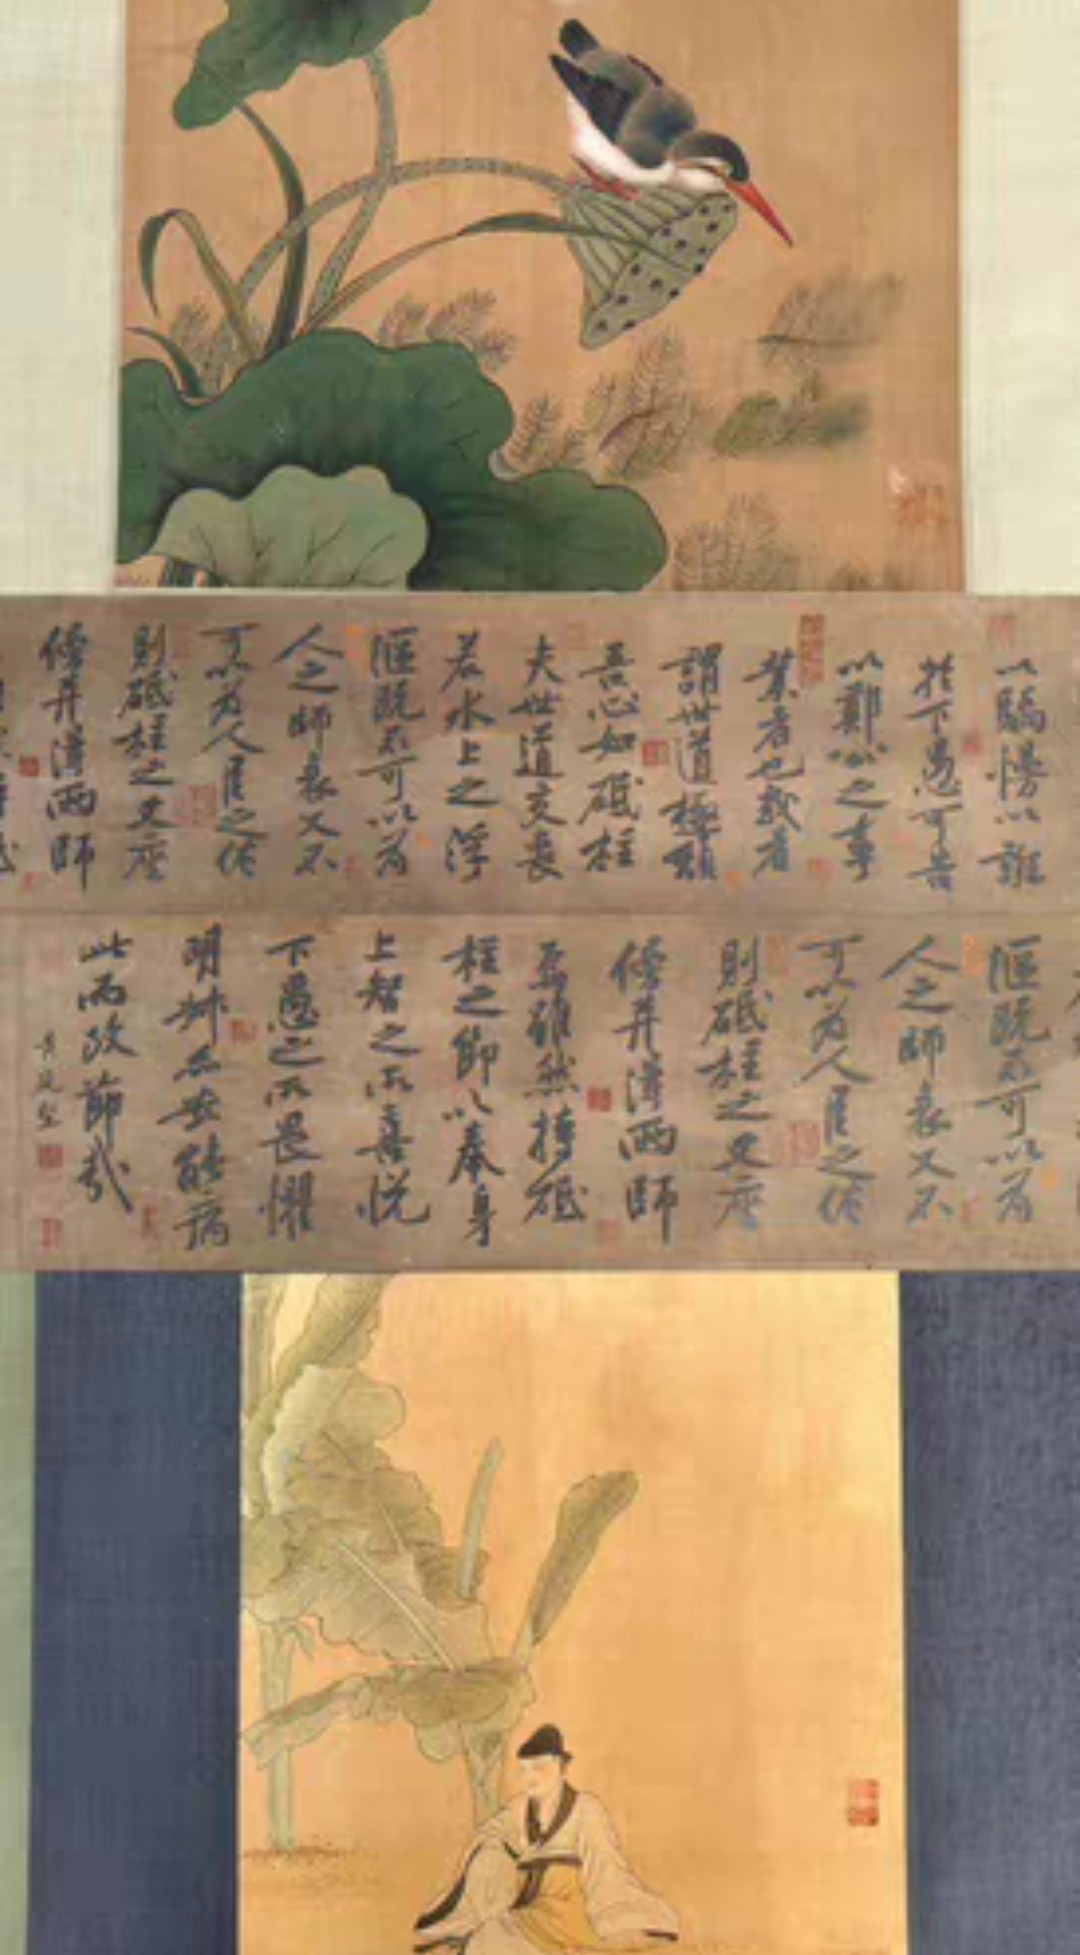 於下愚可告
以鄭公之事
業者也或者
謂世道極頹
吾心如砥柱
夫世道交喪
若水上之浮
漚既不可以為
人之師表又不
可以為人臣之佐
則砥柱之文座
傍并得兩師
漚既不可以為
人之師表又不
可以為人臣之佐
則砥柱之文座
傍并得兩師
焉雖然持砥
柱之節以奉身
上智之所喜悅
下愚之所畏懼
明叔亦安能病
此而改節哉
黃庭堅